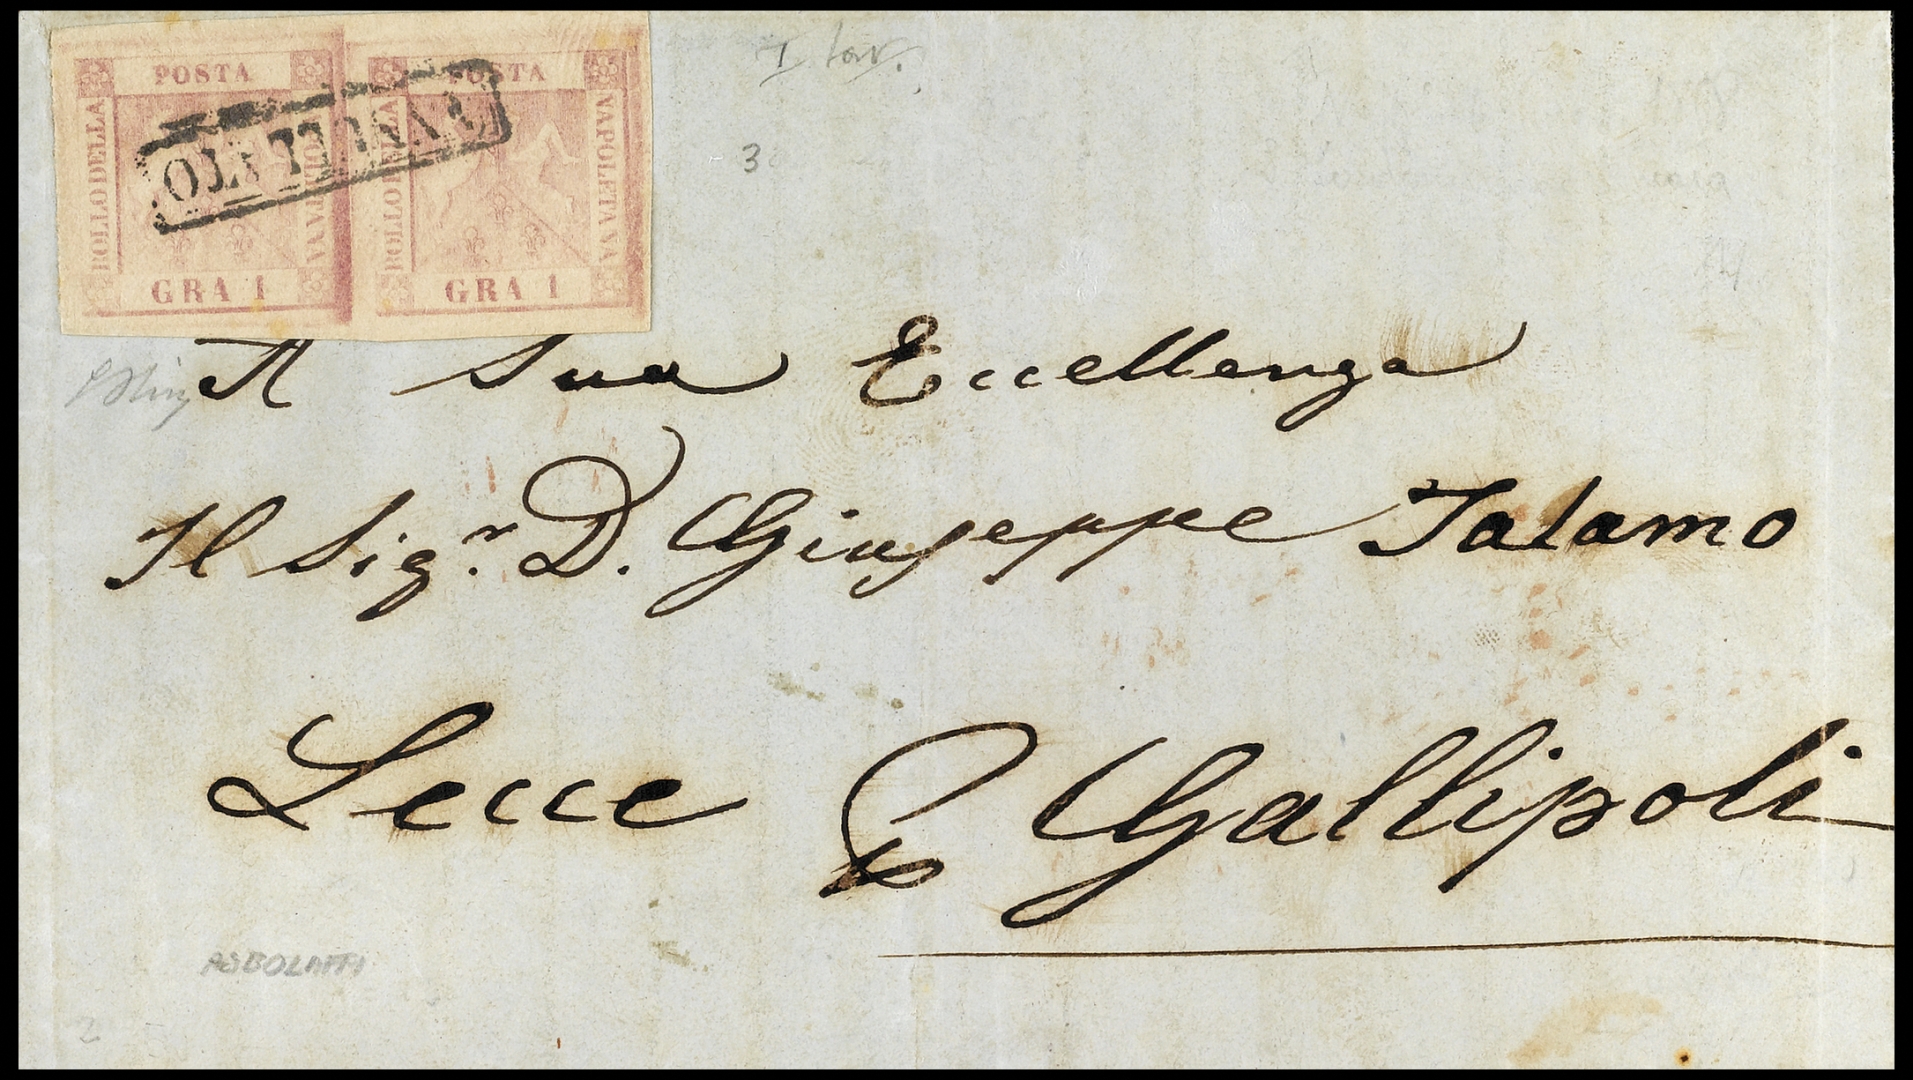 POSTA
BOLLO DELLA
NAPOLETANA
GRA 1
POSTA
BOLLO DELLA
NAPOLETANA
GRA 1
ANNULLATO
I tav.
3
A Sua Eccellenza
Il Sig.r D. Giuseppe Talamo
Lecce p Gallipoli
ASBOLATTI
2